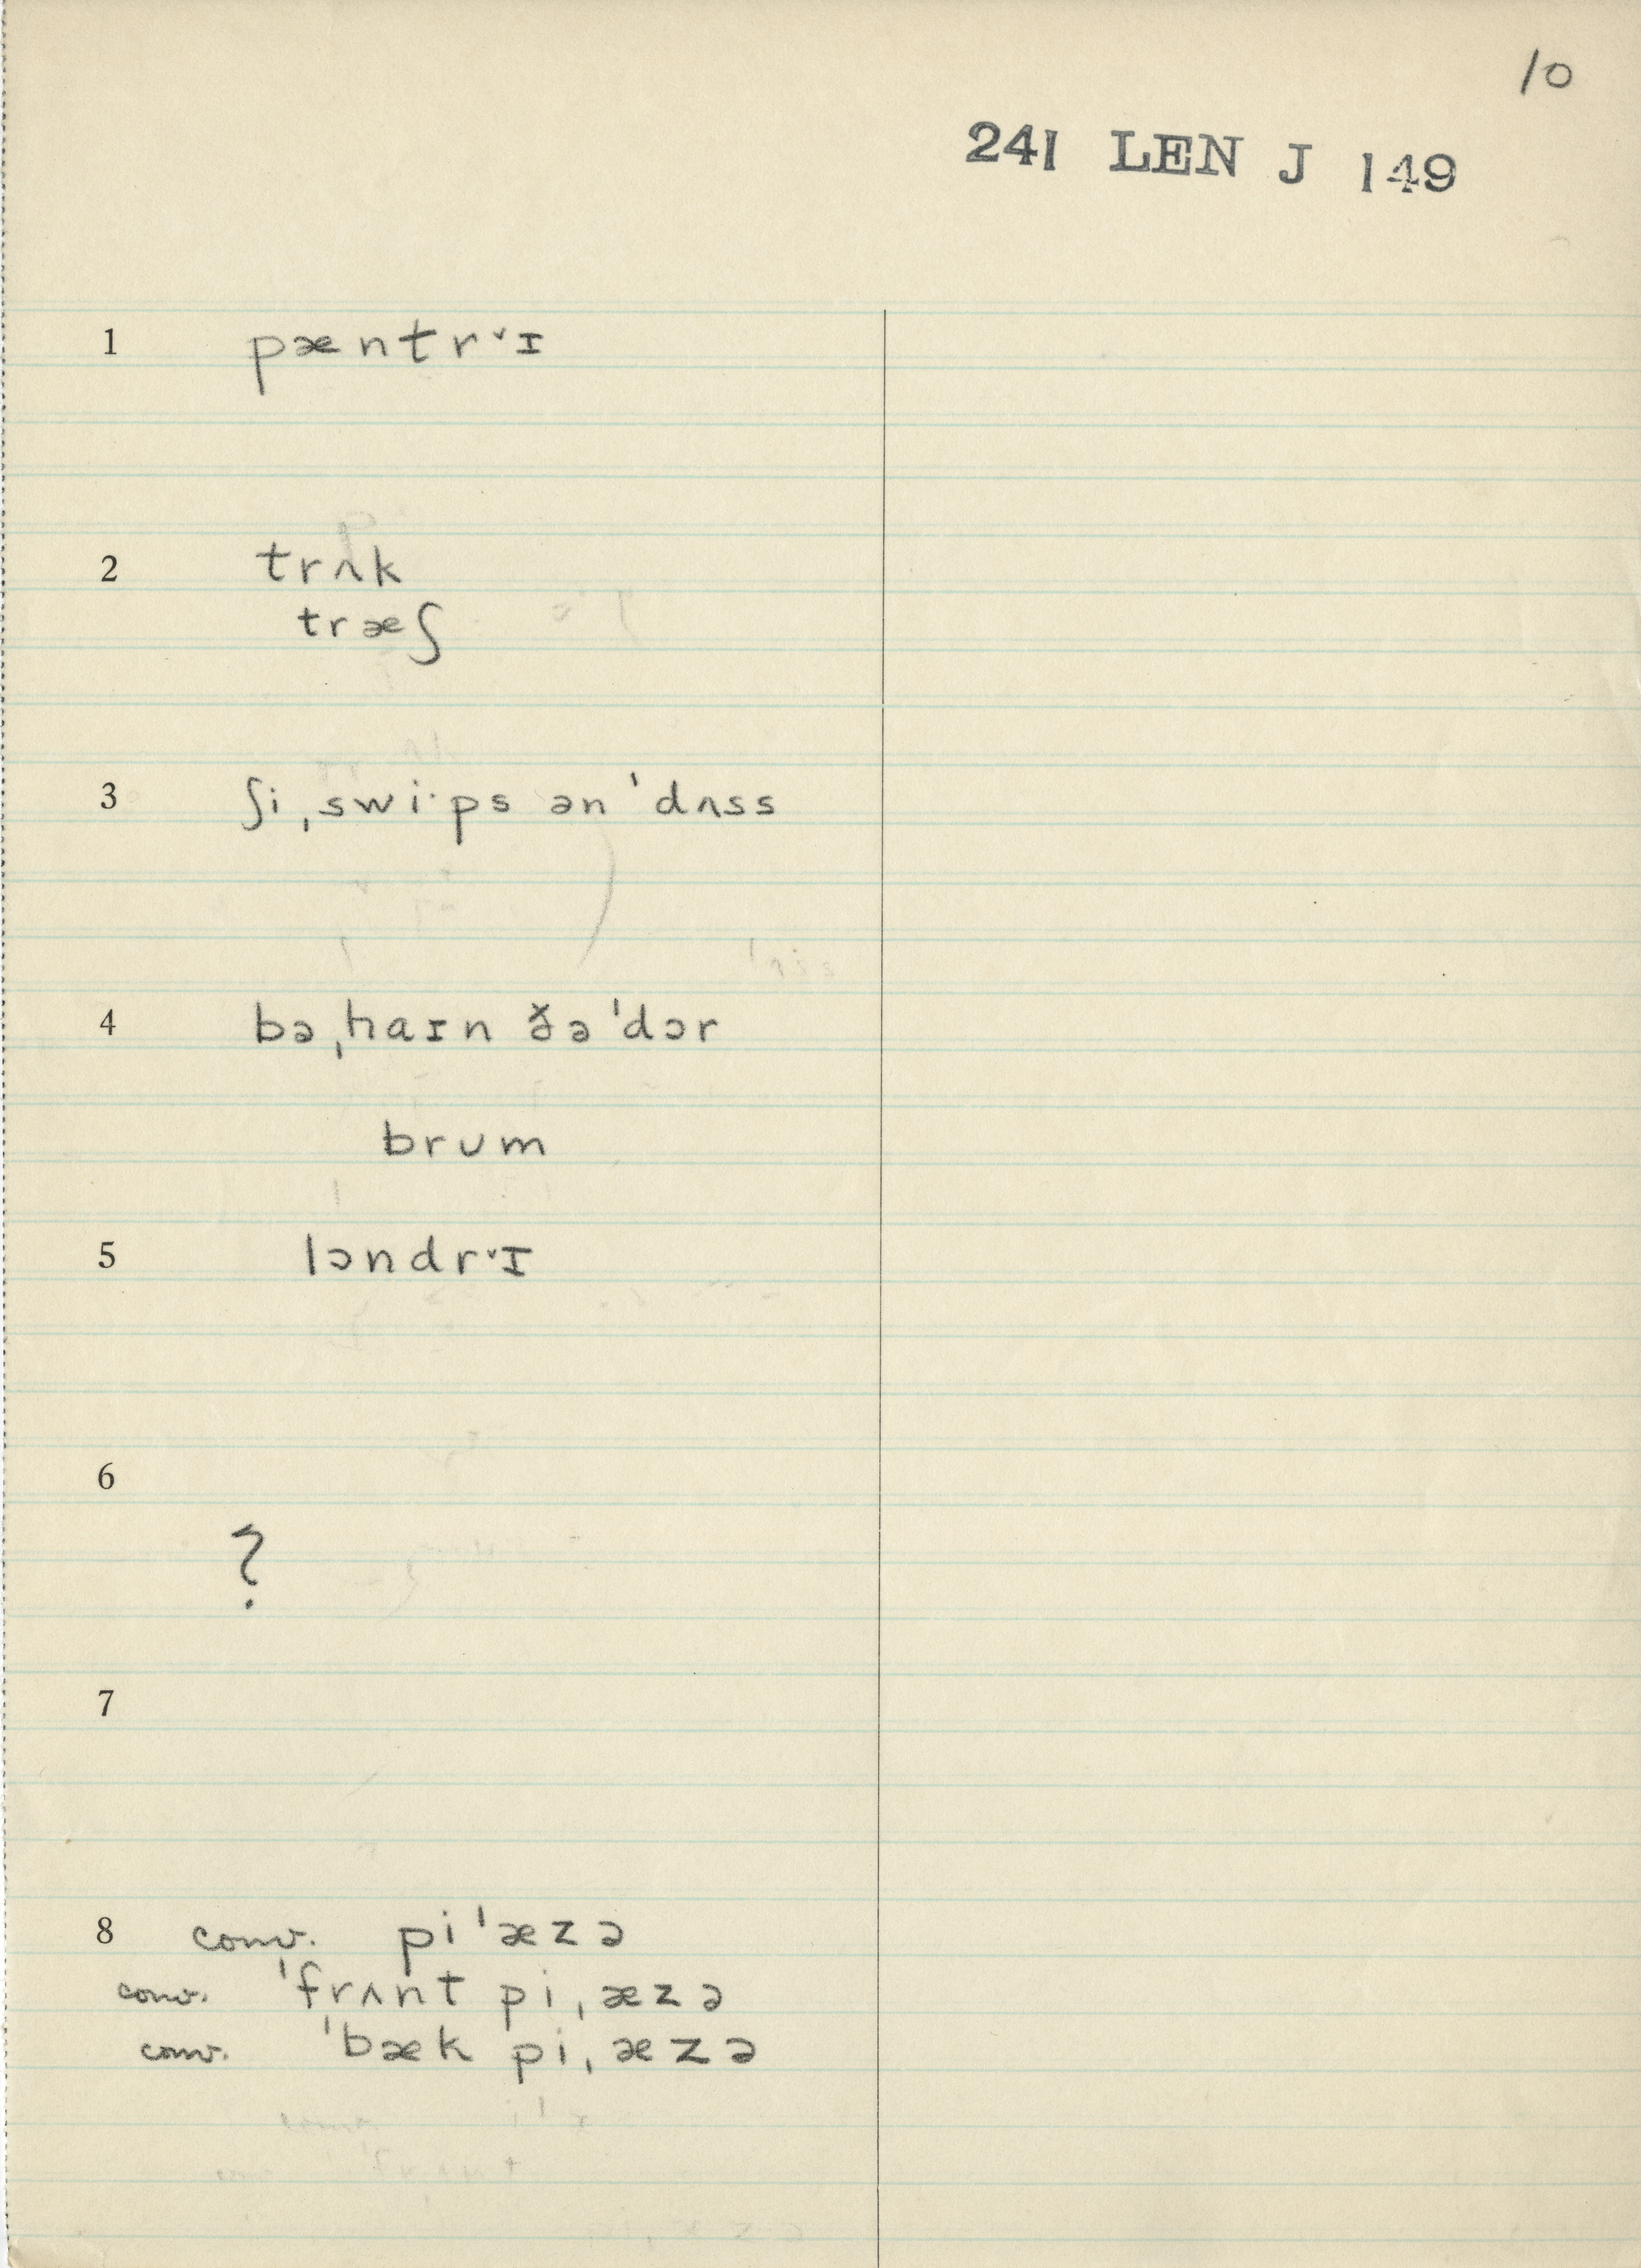 10
241 LEN J 149
1 pæntr˅ɪ
2 trʌk
træʃ
3 ʃi ˌswi·ps ən ˈdʌss
4 bəˌhaɪn ð̌ə ˈdɔr
brum
5 lɔndr˅ɪ
6
?
7
8 conv. piˈæzə
conv. ˈfrʌnt piˌæzə
conv. ˈbæk piˌæzə